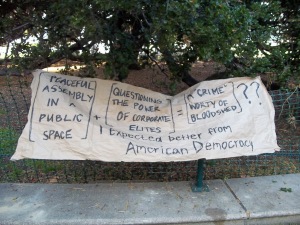 PEACEFUL
ASSEMBLY
IN A
PUBLIC
SPACE
+
QUESTIONING
THE POWER
OF CORPORATE
ELITES
=
A "CRIME"
WORTY OF
BLOODSHED
??
I Expected better from
American Democracy